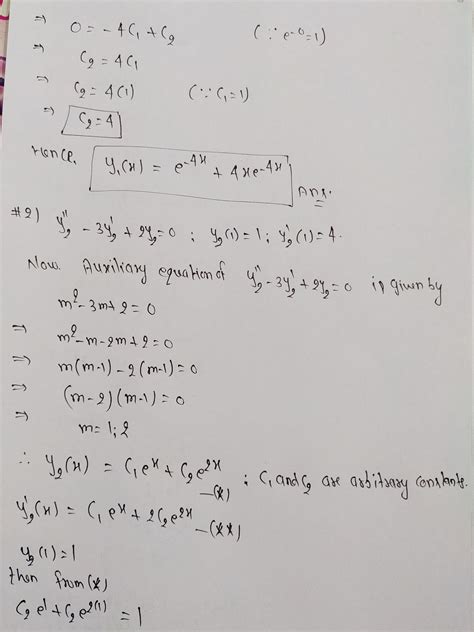 ⇒ 0 = -4C₁ + C₂ (∵ e⁻⁰=1)
⇒ C₂ = 4C₁
⇒ C₂ = 4(1) (∵ C₁=1)
⇒ C₂ = 4
Hence, y₁(x) = e^{-4x} + 4xe^{-4x} Ans.
#2) y₂'' - 3y₂' + 2y₂ = 0 ; y₂(1) = 1; y₂'(1) = 4.
Now Auxiliary equation of y₂'' - 3y₂' + 2y₂ = 0 is given by
m² - 3m + 2 = 0
⇒ m² - m - 2m + 2 = 0
⇒ m(m-1) - 2(m-1) = 0
⇒ (m-2)(m-1) = 0
⇒ m = 1; 2
∴ y₂(x) = C₁e^x + C₂e^{2x} —(*) ; C₁ and C₂ are arbitrary constants.
y₂'(x) = C₁e^x + 2C₂e^{2x} —(**)
y₂(1) = 1
then from (*)
C₂e¹ + C₂e^{2(1)} = 1